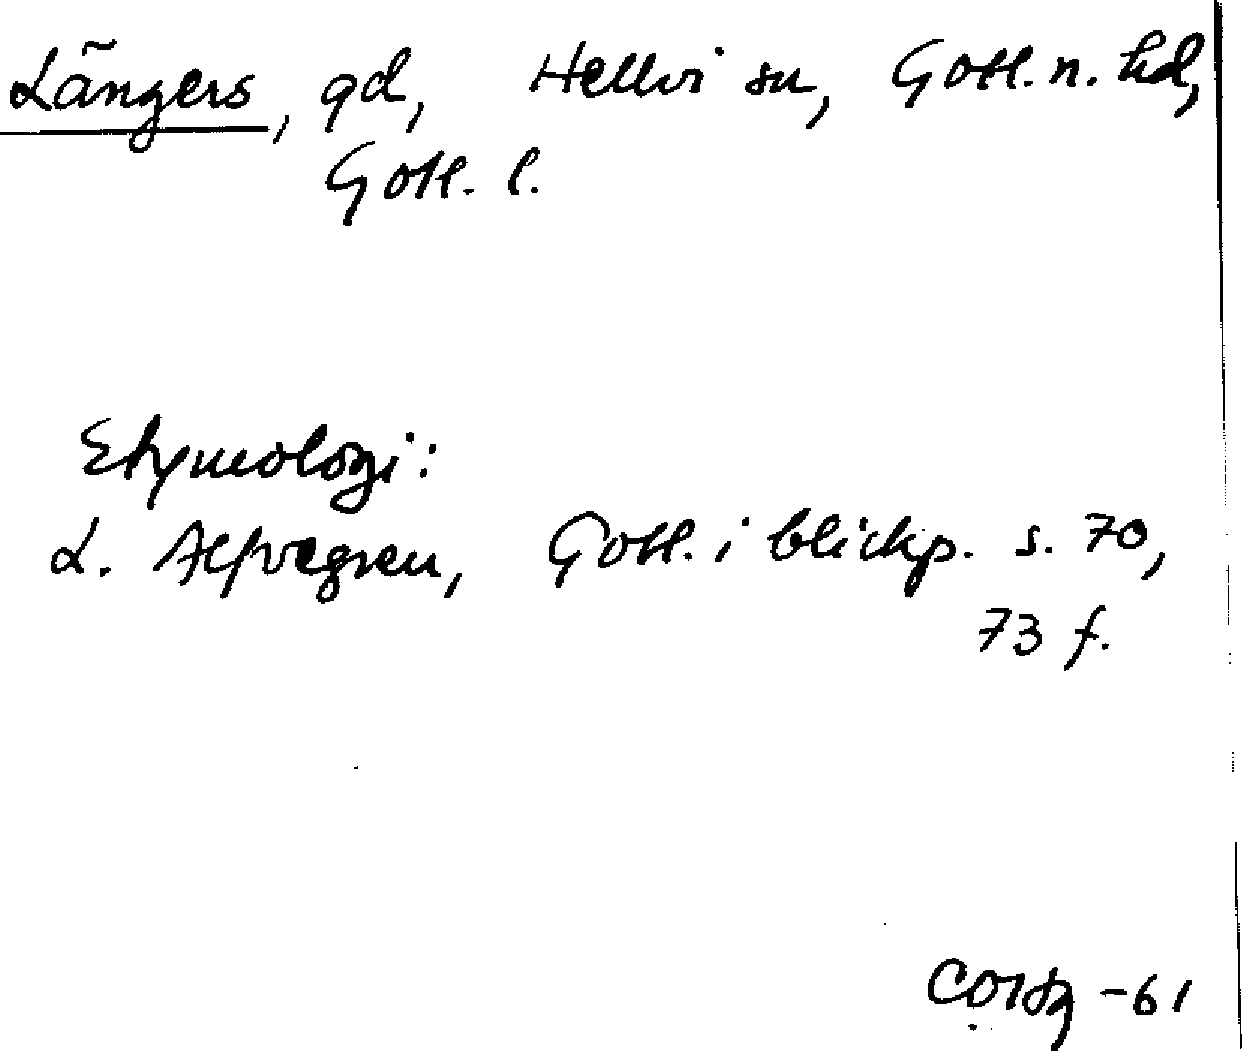 Längers, gd, Hellvi sn, Gotl. n. hd,
Gotl. l.
Etymologi:
L. Alfvegren, Gotl. i blickp. s. 70,
73 f.
-61